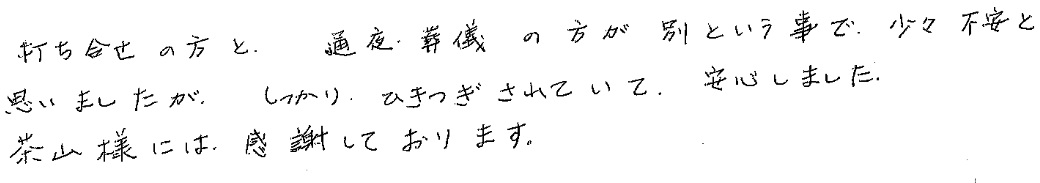 打ち合せの方と、通夜、葬儀の方が別という事で、少々不安と
思いましたが、しっかり、ひきつぎされていて、安心しました。
茶山様には、感謝しております。